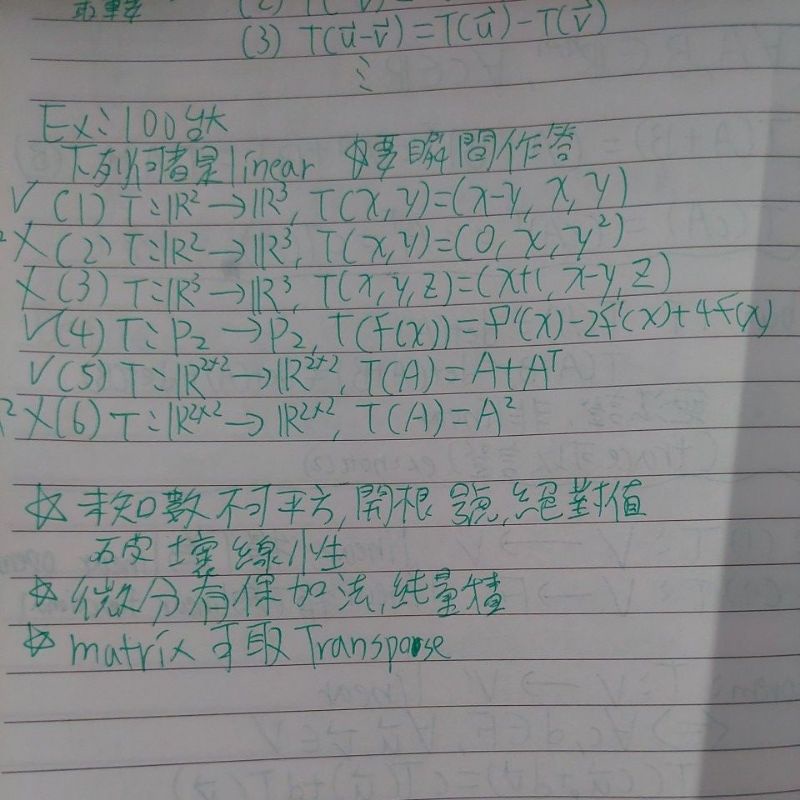 (3) T(u⃗-v⃗)=T(u⃗)-T(v⃗)
⋮
Ex:100
下列何者是linear ☆要瞬間作答
✓ (1) T:ℝ²→ℝ³, T(x,y)=(x-y, x, y)
✗ (2) T:ℝ²→ℝ³, T(x,y)=(0, x, y²)
✗ (3) T:ℝ³→ℝ³, T(x,y,z)=(x+1, x-y, z)
✓ (4) T:P₂→P₂, T(f(x))=f''(x)-2f'(x)+4f(x)
✓ (5) T:ℝ²ˣ²→ℝ²ˣ², T(A)=A+Aᵀ
✗ (6) T:ℝ²ˣ²→ℝ²ˣ², T(A)=A²
☆ 未知數不可平方,開根號,絕對值
破壞線性
☆ 微分有保加法,純量積
☆ matrix 可取Transpose